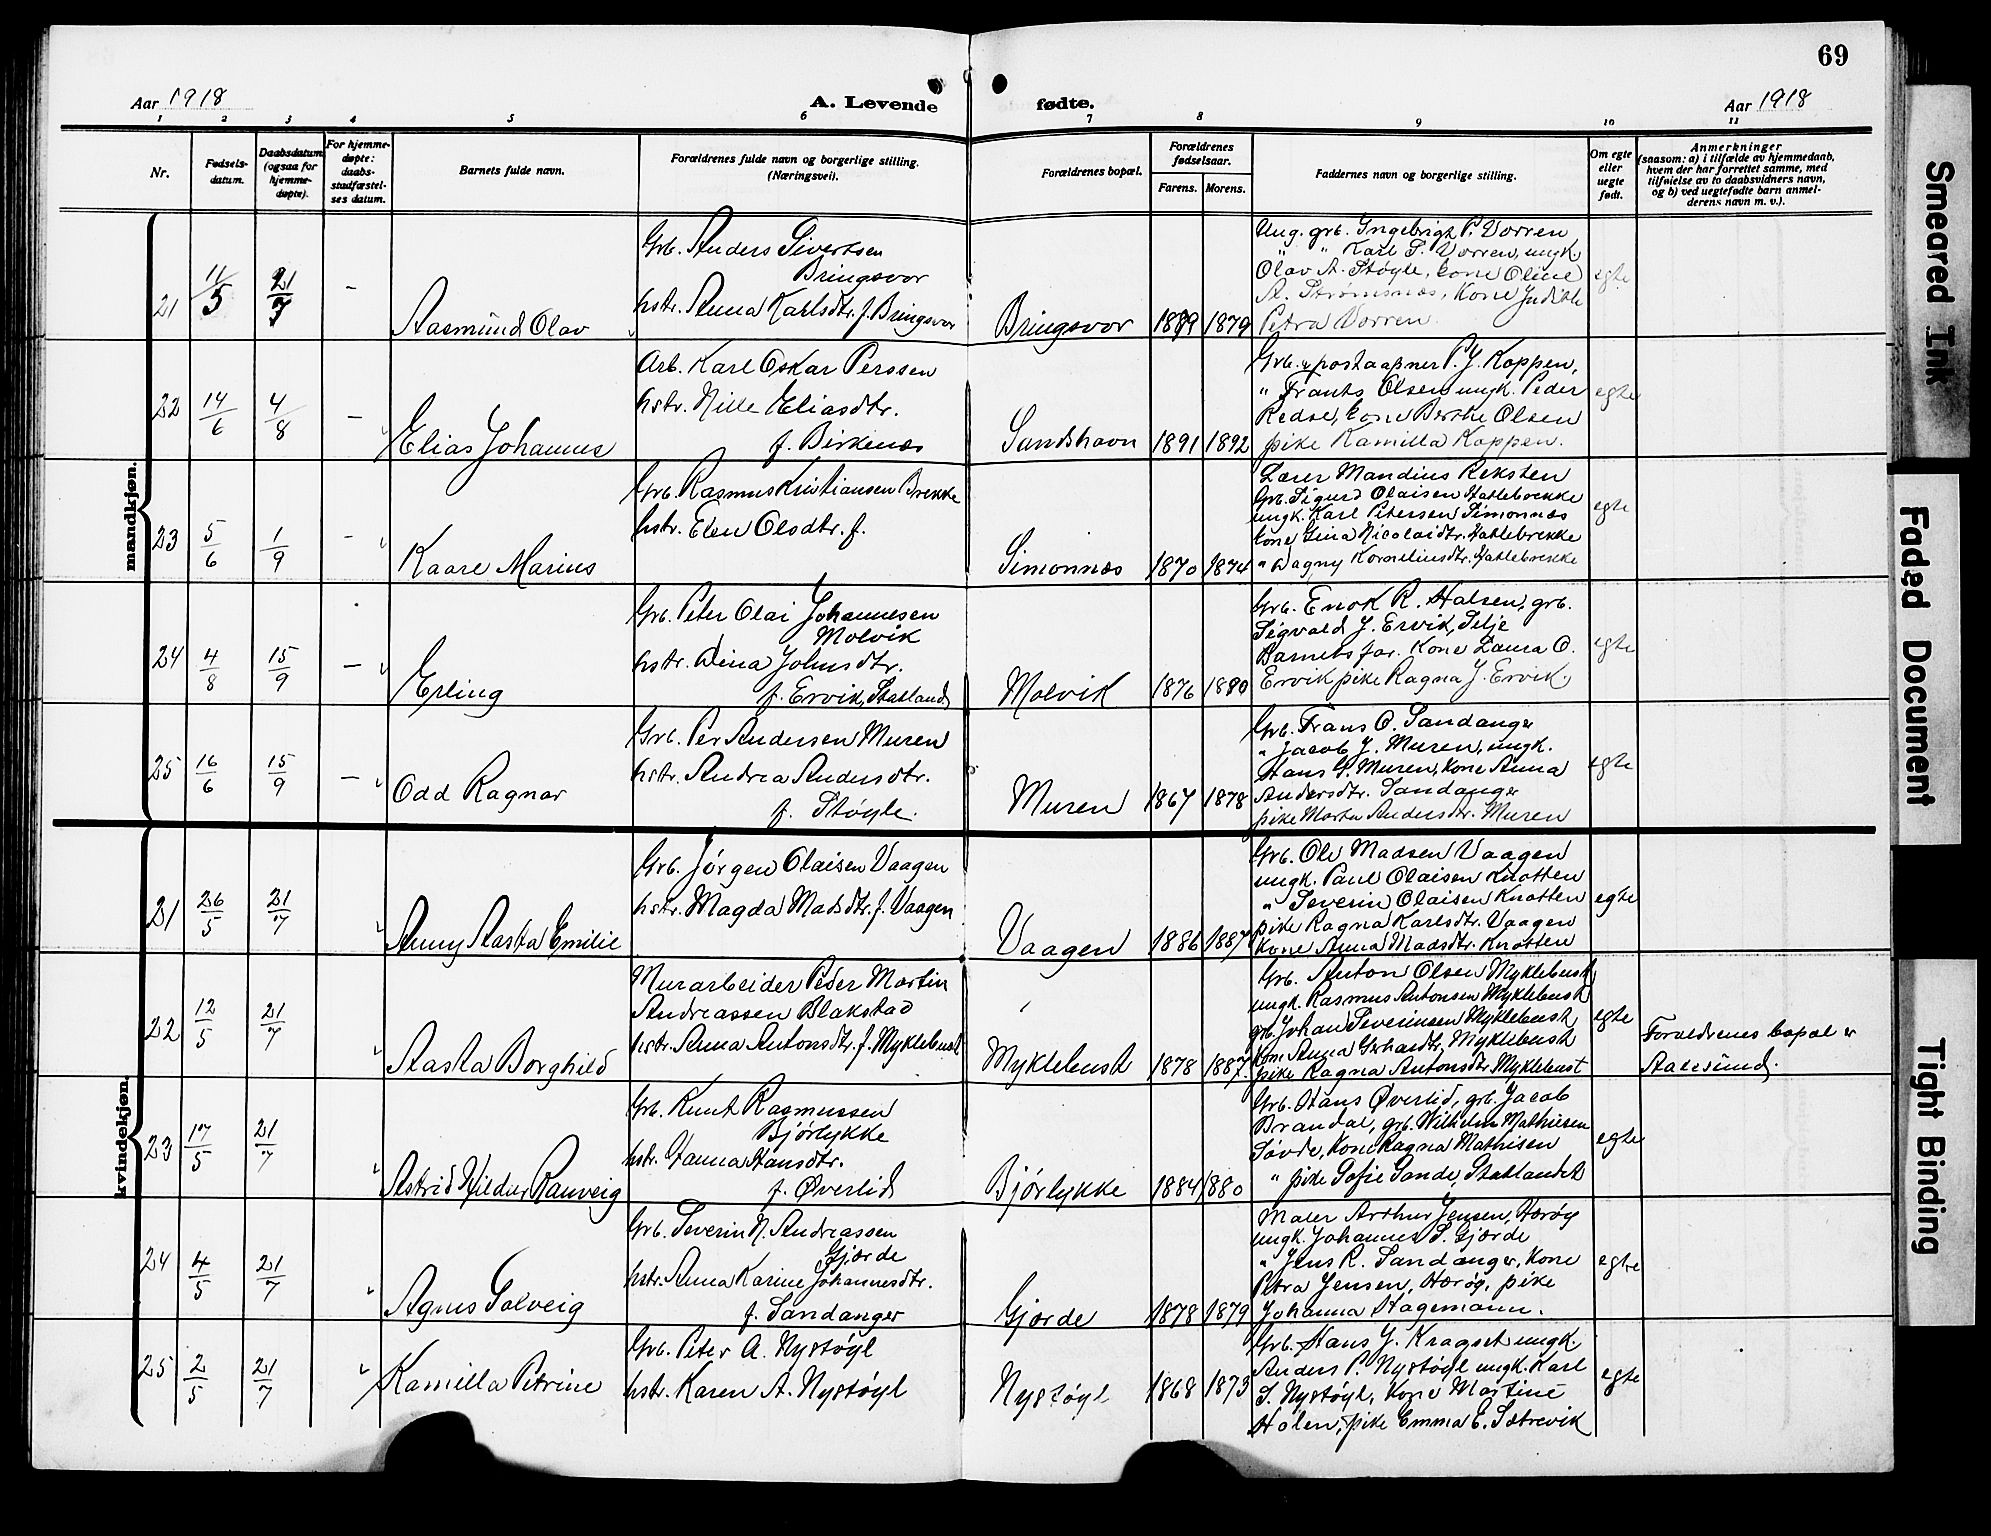 69
Aar 1918
A. Levende fødte.
Aar 1918
1 2 3 4 5 6 7 8 9 10 11
Nr.
Fødsels-
datum.
Daabsdatum
(ogsaa for
hjemme-
døpte).
For hjemme-
døpte:
daabs-
stadfæstel-
ses datum.
Barnets fulde navn.
Forældrenes fulde navn og borgerlige stilling.
(Næringsvei).
Forældrenes bopæl.
Forældrenes
fødselsaar.
Farens. Morens.
Faddernes navn og borgerlige stilling.
Om egte
eller
uegte
født.
Anmerkninger
(saasom: a) i tilfælde av hjemmedaab,
hvem der har forrettet samme, med
tilføielse av to daabsvidners navn,
og b) ved uegtefødte barn anmel-
derens navn m. v.).
mandkjøn.
21 11/5 21/7 —
Aasmund Olav
Grb. Anders Sivertsen
Bringsvor
hstr. Anna Karlsdtr. f. Bringsvor
Bringsvor 1879
Ung. grb. Ingebrigt P. Vorren
" " Karl S. Vorren, ungk.
Olav A. Støyle, kone Oline
A. Strømsnæs, Kone
Petra Vorren.
egte
22 14/6 4/8 —
Elias Johannes
Arb. Karl Oskar Perssen
hstr. Nille Eliasdtr.
f. Birkenæs
Sandshavn 1891 1892
Grb. & postaapner P. J. Koppen,
" Frants Olsen ungk. Peder
Redse, kone Berthe Olsen
pike Kamilla Koppen.
egte
23 5/6 1/9 —
Kaare Marius
Grb. Rasmus Kristiansen Brekke
hstr. Elen Olsdtr. f.
Simonnæs 1870 1874
Lærer Mandius Reksten
Grb. Sigurd Olaisen Hatlebrekke
ungk. Karl Petersen Simonnæs
kone Gina Nicolaidtr. Hatlebrekke
" Dagny Korneliusdtr. Hatlebrekke
egte
24 4/8 15/9 —
Erling
Grb. Peter Olai Johannesen
Molvik
hstr. Dina Johnsdtr.
f. Ervik, Statland
Molvik 1876 1880
Grb. Enok R. Halsen, grb.
Sigvald J. Ervik, Selje
Barnets far. Kone Laura O.
Ervik pike Ragna J. Ervik.
egte
25 16/6 15/9 —
Odd Ragnar
Grb. Per Andersen Muren
hstr. Andrea Andersdtr.
f. Støyle.
Muren 1867 1878
Grb. Frans O. Sandanger
" Jacob J. Muren, ungk.
Hans P. Muren, kone Anna
Andersdtr. Sandanger
pike Marta Andersdtr. Muren
egte
kvindekjøn.
21 26/5 21/7
Anny Aasta Emilie
Grb. Jørgen Olaisen Vaagen
hstr. Magda Madsdtr. f. Vaagen
Vaagen 1886 1887
Grb. Ole Madsen Vaagen
ungk. Paul Olaisen Knotten
" Severin Olaisen Knotten
pike Ragna Karlsdtr. Vaagen
Kone Anna Madsdtr. Knotten
egte
22 12/5 21/7
Aasta Borghild
Murarbeider Peder Martin
Andreassen Blakstad
hstr. Anna Antonsdtr. f. Myklebust
Myklebust 1878 1887
Grb. Anton Olsen Myklebust
ungk. Rasmus Antonsen Myklebust
grb. Johan Severinsen Myklebust,
kone Anna Gerhardtr. Myklebust
pike Ragna Antonsdtr Myklebust
egte
Forældrenes bopæl er
Aalesund.
23 17/5 21/7
Astrid Hildur Ranveig
Grb. Knut Rasmussen
Bjørlykke
hstr. Hanna Hansdtr.
f. Øverlid
Bjørlykke 1884 1880
Grb. Hans Øverlid, grb. Jacob
Brandal, grb. Wilhelm Mathiesen
Søvde, Kone Ragna Mathisen
" pike Sofie Sande, Statlandet
egte
24 4/5 21/7
Agnes Solveig
Grb. Severin N. Andreassen
Gjærde
hstr. Anna Karine Johannesdtr.
f. Sandanger
Gjærde 1878 1879
Maler Arthur Jensen, Herøy
ungk. Johannes S. Gjærde
" Jens R. Sandanger, Kone
Petra Jensen, Herøy, pike
Johanna Hagemann.
egte
25 2/5 21/7
Kamilla Petrine
Grb. Peter A. Nystøyl
hstr. Karen A. Nystøyl
Nystøyl 1868 1873
Grb. Hans J. Kragset ungk.
Anders P. Nystøyl ungk. Karl
S. Nystøyl, Kone Martine
Holen, pike Emma E. Sætrevik
egte
Smeared Ink
Faded Document
Tight Binding